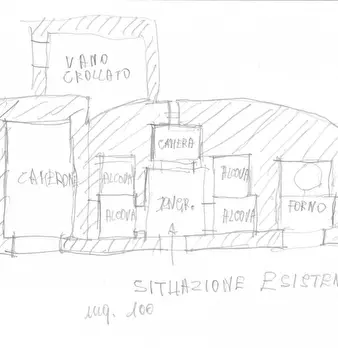 VANO
CROLLATO
CAMERA
CAMERONE
ALCOVA
ALCOVA
ALCOVA
INGR.
ALCOVA
FORNO
SITUAZIONE ESISTEN
mq. 100